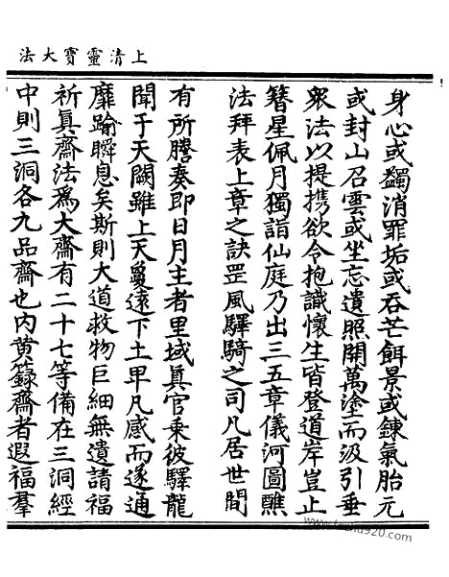 上清靈寶大法
身心或蠲消罪垢或吞芒餌景或鍊氣胎元
或封山召雲或坐忘遺照開萬塗而汲引垂
衆法以提攜欲令抱識懷生皆登道岸豈止
簪星佩月獨詣仙庭乃出三五章儀河圖醮
法拜表上章之訣罡風驛騎之司凡居世間
有所謄奏即日月主者里域眞官乗彼驛龍
聞于天闕雖上天敻遠下土卑凡感而遂通
靡踰瞬息矣斯則大道救物巨細無遺請福
祈眞齋法爲大齋有二十七等備在三洞經
中則三洞各九品齋也内黄籙齋者遐福羣